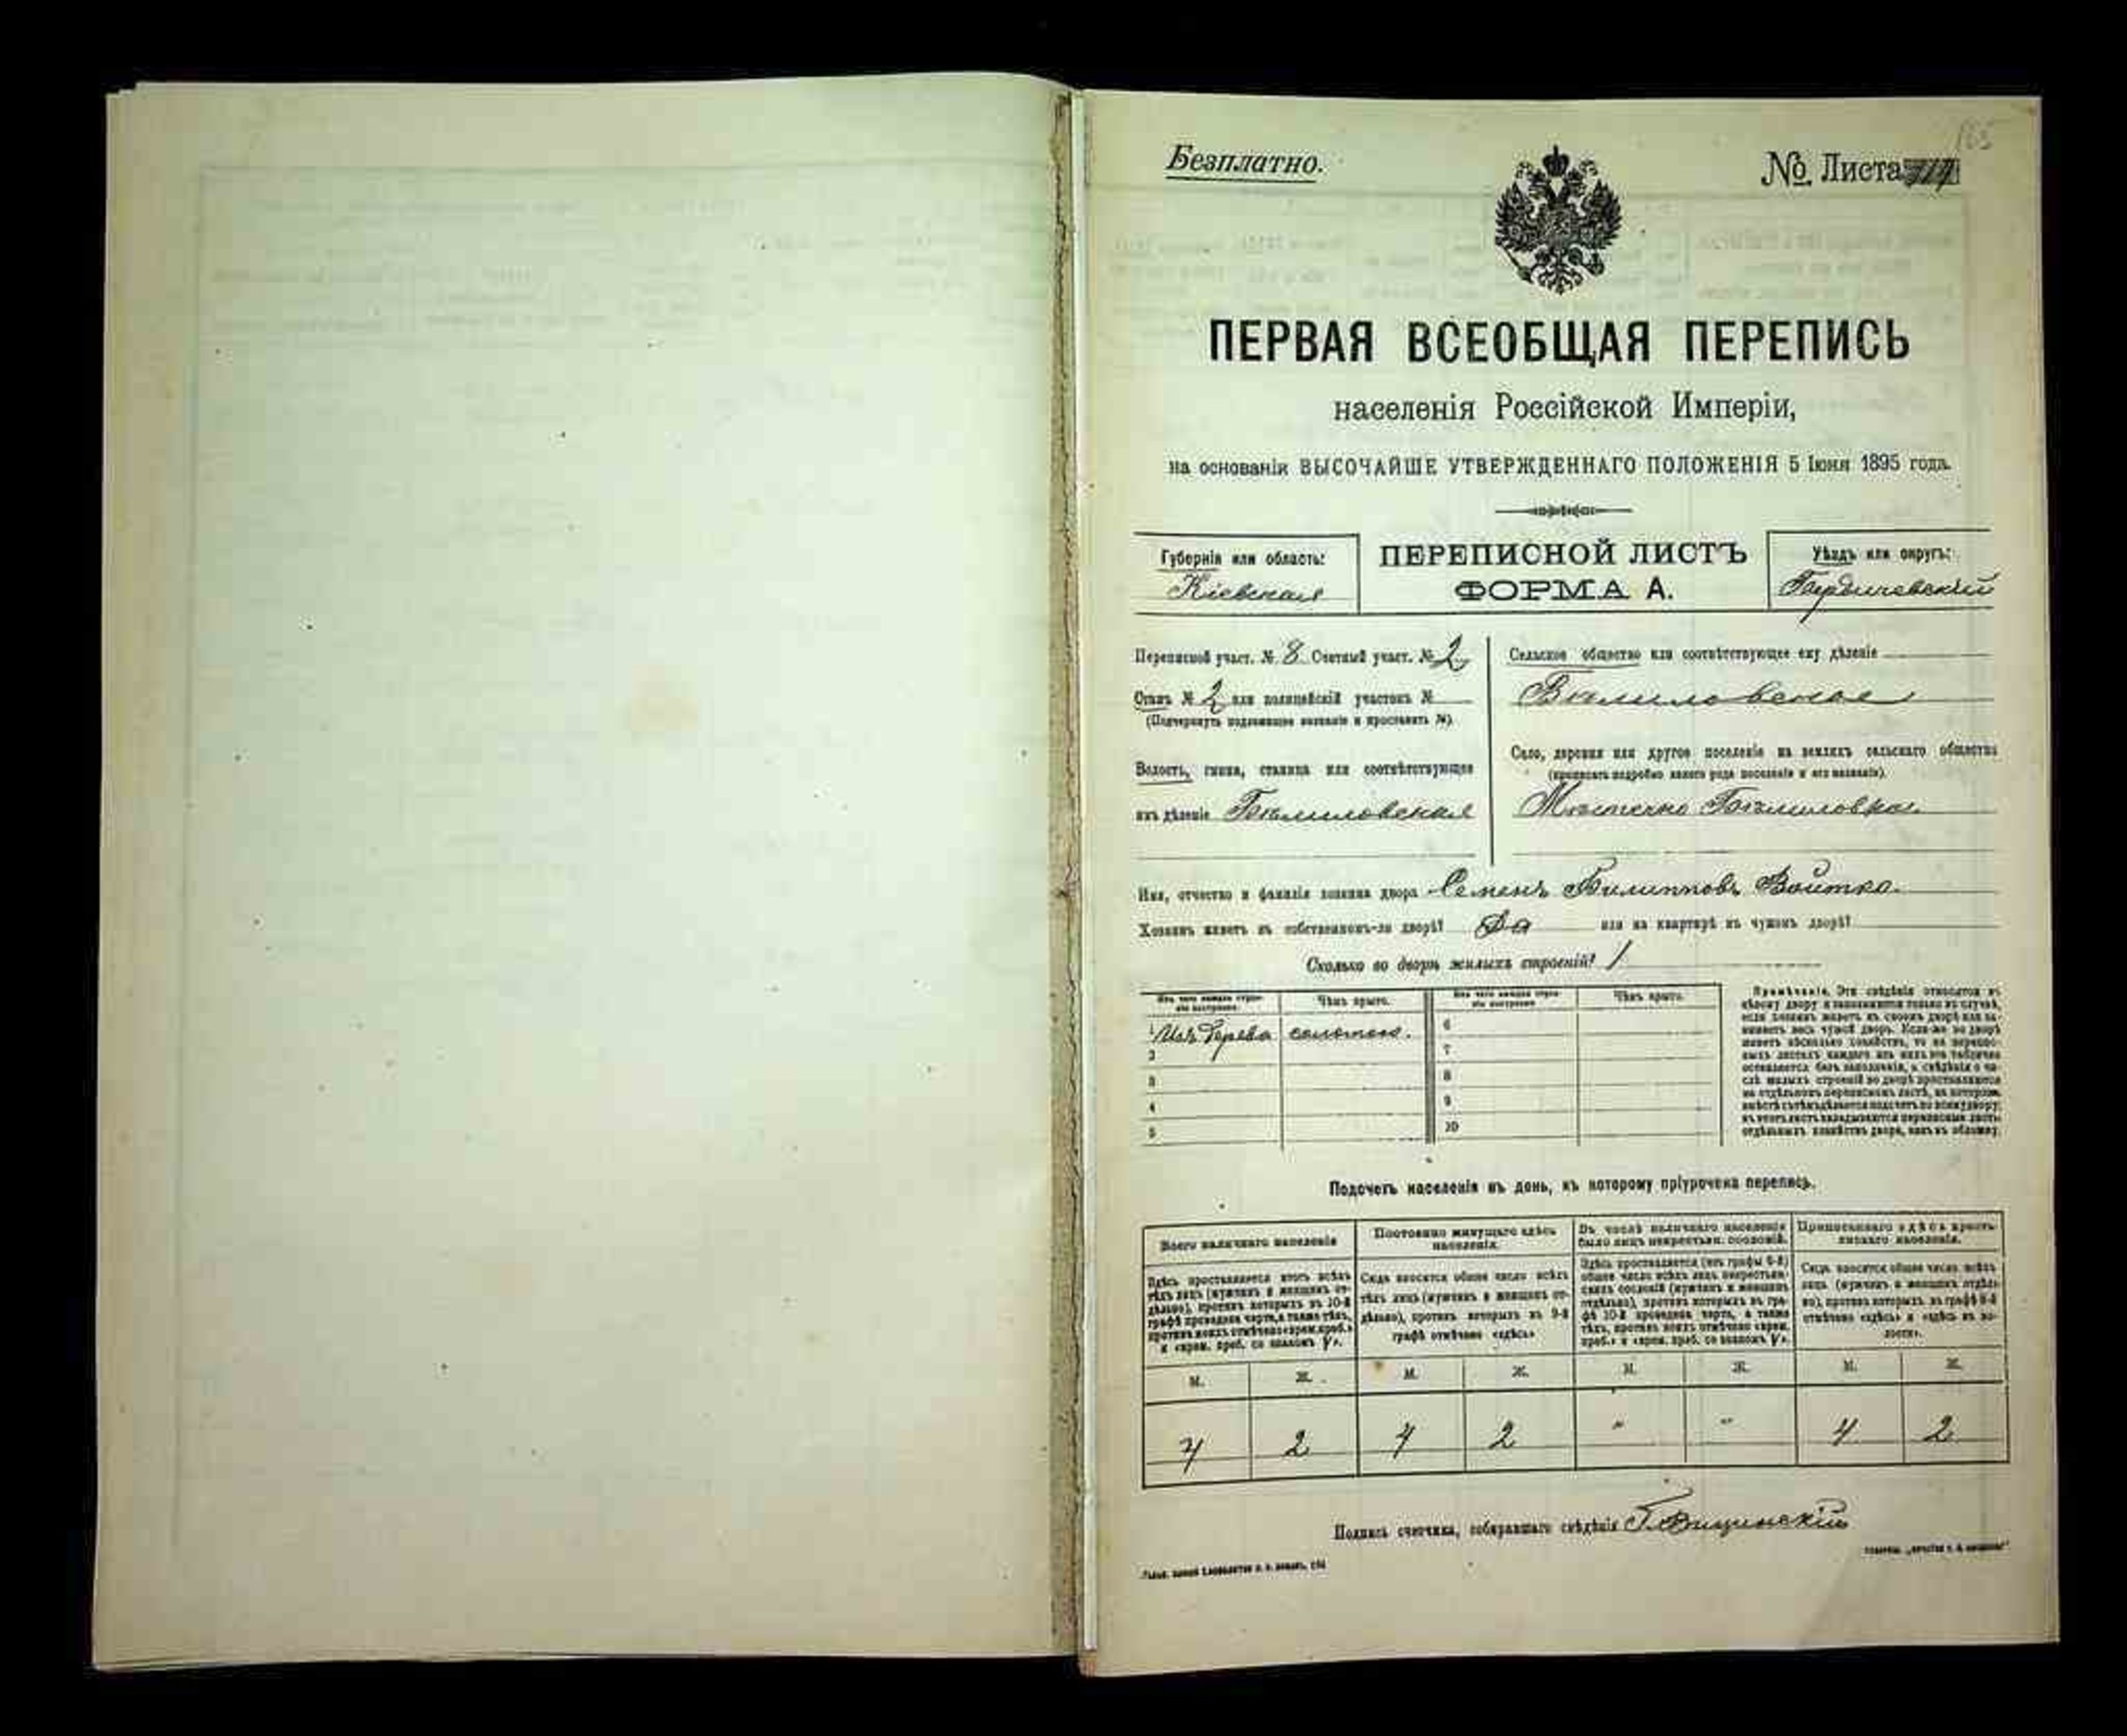 165
Безплатно.
№ Листа
ПЕРВАЯ ВСЕОБЩАЯ ПЕРЕПИСЬ
населенія Россійской Имперіи,
на основаніи ВЫСОЧАЙШЕ УТВЕРЖДЕННАГО ПОЛОЖЕНІЯ 5 Іюня 1895 года.
Губернія или область:
Кіевская
ПЕРЕПИСНОЙ ЛИСТЪ
ФОРМА А.
Уѣздъ или округъ:
Бердичевскій
Переписной участ. № 8 Счетный участ. № 2
Станъ № 2 или полицейскій участокъ №
(Подчеркнуть подлежащее названіе и проставить №).
Волость, гмина, станица или соотвѣтствующее
имъ дѣленіе Бѣлиловская
Сельское общество или соотвѣтствующее ему дѣленіе
Бѣлиловское
Село, деревня или другое поселеніе на земляхъ сельскаго общества
(прописать подробно какого рода поселеніе и его названіе).
Мѣстечко Бѣлиловка
Имя, отчество и фамилія хозяина двора Семенъ Филипповъ Войтко.
Хозяинъ живетъ въ собственномъ-ли дворѣ? Да или на квартирѣ въ чужомъ дворѣ?
Сколько во дворѣ жилыхъ строеній? 1
Изъ чего каждое строеніе построено.
Чѣмъ крыто.
Изъ чего каждое строеніе построено.
Чѣмъ крыто.
1 Изъ дерева соломою. 6
2 7
3 8
4 9
5 10
Примѣчаніе. Эти свѣдѣнія относятся къ
цѣлому двору и заполняются только въ случаѣ,
если хозяинъ живетъ въ своемъ дворѣ или за-
нимаетъ весь чужой дворъ. Если-же во дворѣ
живетъ нѣсколько хозяйствъ, то на перепис-
ныхъ листахъ каждаго изъ нихъ эта табличка
оставляется безъ заполненія, а свѣдѣнія о чи-
слѣ жилыхъ строеній во дворѣ проставляются
на отдѣльномъ переписномъ листѣ, на которомъ
вмѣстѣ съ тѣмъ дѣлается подсчетъ по всему двору;
въ этотъ листъ вкладываются переписные листы
отдѣльныхъ хозяйствъ двора, какъ въ обложку.
Подсчетъ населенія въ день, къ которому пріурочена перепись.
Всего наличнаго населенія
Здѣсь проставляется итогъ всѣхъ
тѣхъ лицъ (мужчинъ и женщинъ от-
дѣльно), противъ которыхъ въ 10-й
графѣ проведена черта, а также тѣхъ,
противъ коихъ отмѣчено «врем. преб.»
и «врем. преб. со знакомъ V».
Постоянно живущаго здѣсь
населенія.
Сюда вносится общее число всѣхъ
тѣхъ лицъ (мужчинъ и женщинъ от-
дѣльно), противъ которыхъ въ 9-й
графѣ отмѣчено «здѣсь»
Въ числѣ наличнаго населенія
было лицъ некрестьян. сословій.
Здѣсь проставляется (изъ графы 6-й)
общее число всѣхъ лицъ некрестьян-
скихъ сословій (мужчинъ и женщинъ
отдѣльно), противъ которыхъ въ гра-
фѣ 10-й проведена черта, а также
тѣхъ, противъ коихъ отмѣчено «врем.
преб.» и «врем. преб. со знакомъ V».
Приписаннаго здѣсь кресть-
янскаго населенія.
Сюда вносится общее число всѣхъ
лицъ (мужчинъ и женщинъ отдѣль-
но), противъ которыхъ въ графѣ 8-й
отмѣчено «здѣсь» и «здѣсь въ во-
лости».
М. Ж. М. Ж. М. Ж. М. Ж.
4 2 4 2 " " 4 2
Подпись счетчика, собиравшаго свѣдѣнія Г. Вицинскій